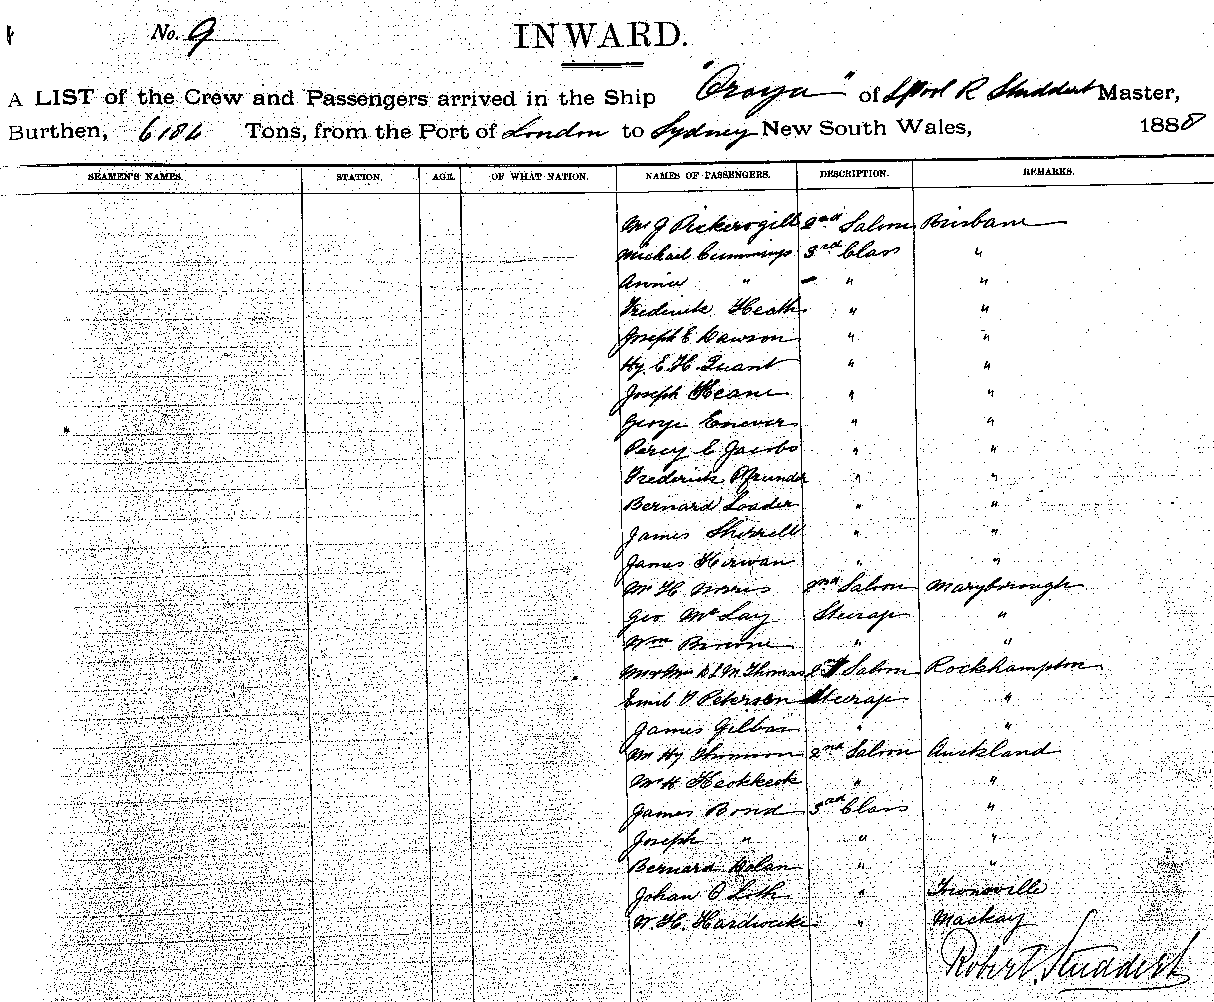 No. 9
INWARD.
A LIST of the Crew and Passengers arrived in the Ship "Oroya" of R Studdert Master,
Burthen, 6186 Tons, from the Port of London to Sydney New South Wales, 1888
SEAMEN'S NAMES. STATION. AGE. OF WHAT NATION. NAMES OF PASSENGERS. DESCRIPTION. REMARKS.
J Pickersgill 2nd Saloon Brisbane
Michael Cummings 3rd Class "
Annie " " "
Frederick Heath " "
Joseph E Dawson " "
Hy. E. H Quant " "
Joseph Keane " "
George Enever " "
Percy E Jacobs " "
Frederick " "
Bernard Loader " "
James Sherrell " "
James Kirwan " "
Mr H Norris 2nd Saloon Maryborough
Geo McLay Steerage "
Wm Browne " "
Mr & Mrs D L M Thomas Saloon Rockhampton
Emil P Petersen Steerage "
James " "
Mr Hy Thomson 2nd Saloon Auckland
" "
James Bond 3rd Class "
Joseph " " "
Bernard Dolan " "
Johan O Leth " Townsville
W. H. Hardwicke " Mackay
Robert Studdert